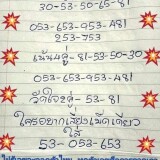 30-53-50-65-81
053-653-953-481
253-753
เน้นคู่-81-53-50-30
053-653-953-481
วัดใจ2คู่-53-81
ใครอยากเสี่ยงเม็ดเดียว
ใส่
53-053-653